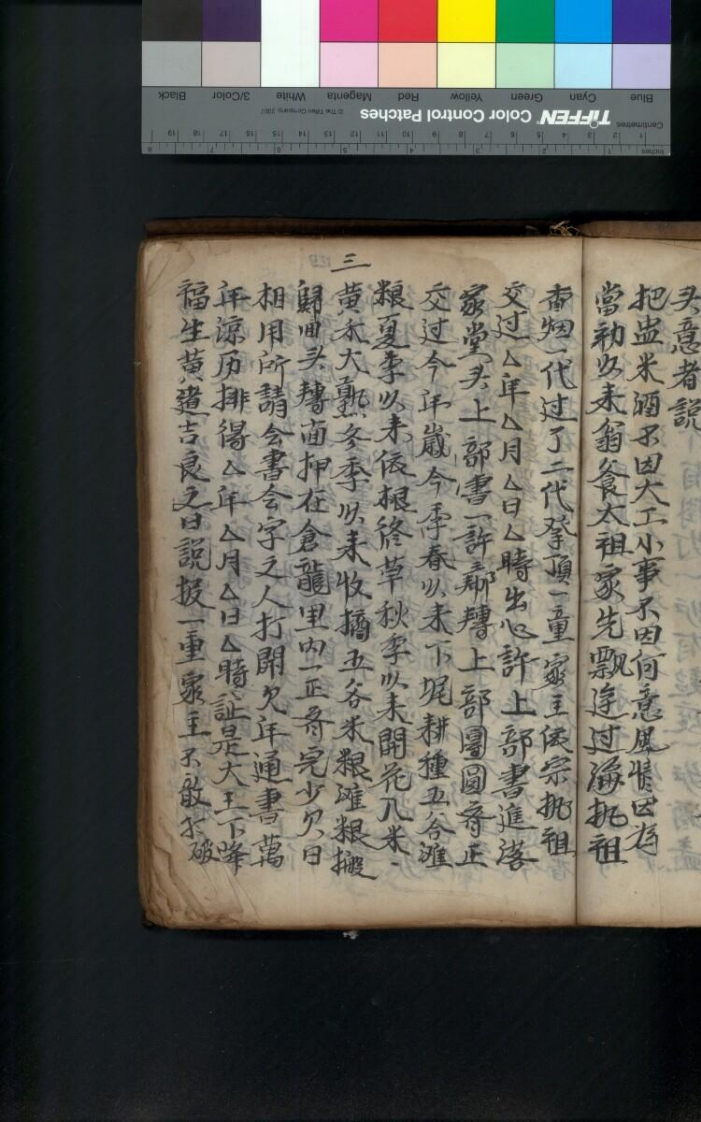 Blue
Cyan
Green
Yellow
Red
Magenta
White
3/Color
Black
TIFFEN Color Control Patches
© The Tiffen Company, 2007
Centimetres
Inches
头意者説
把盅米酒不因大工小事不因何意風情因为
當初以来翁爺太祖家先飄遥过海挑祖
香烟一代过了二代孳頂一童家主侬宗挑祖
交过厶年厶月厶日厶時出心許上部書進落
家堂头上部書一許鄗轉上部團圓齊正
交过今年歲今季春以来下坭耕種五谷淮
粮夏季以来依根修草秋季以来開花几米
三
黄禾大熟冬季以来收摘五谷米粮淮粮搬
歸回头轉面押在倉龍里内一正齊完少欠日
相用所請会書会字之人打開欠年通書萬
年涼历排得厶年厶月厶日厶時証是大王下降
福生黄道吉良之日説报一重家主不敢不破